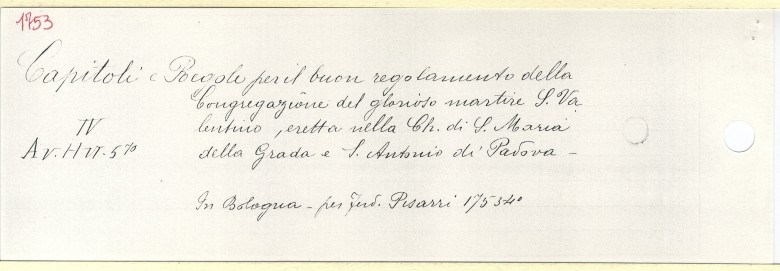 1753
Capitoli e Regole per il buon regolamento della
Congregazione del glorioso martire S. Va
lentino, eretta nella Ch. di S. Maria
della Grada e S. Antonio di Padova -
IV
In Bologna - per Ferd. Pisarri 1753 4°